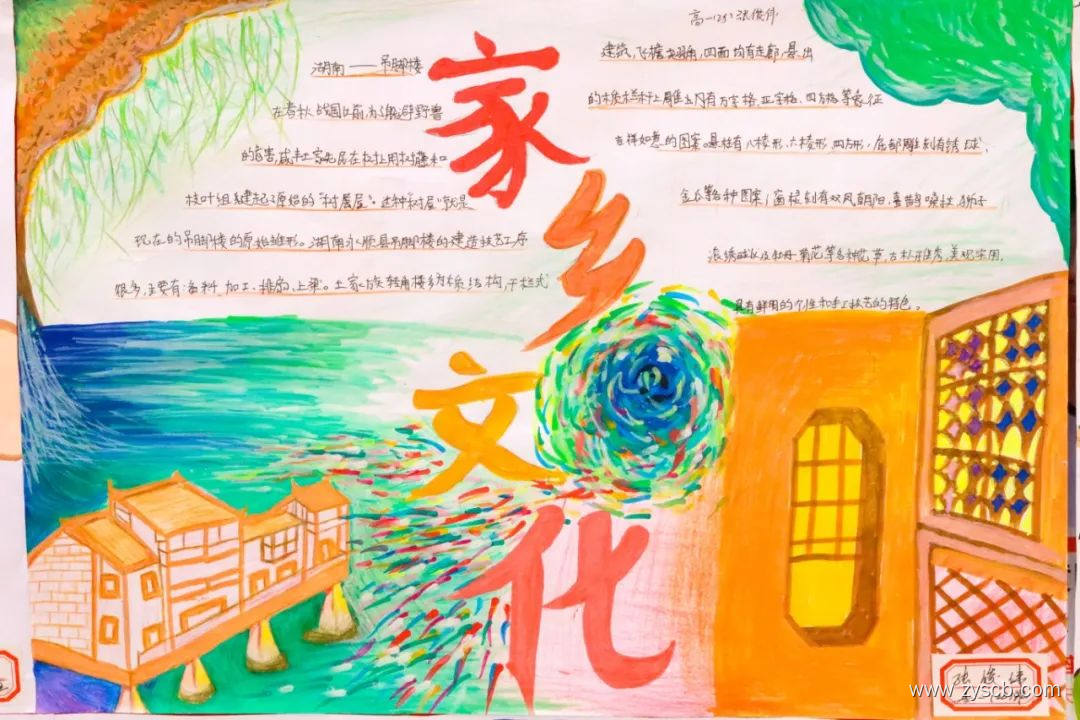 高一(25) 张俊伟
家乡文化
湖南——吊脚楼
在春秋战国以前,为了躲避野兽
的危害,武丰土家先民在树上用树藤和
枝叶组系建起了原始的“树屋屋”。这种“树屋”就是
现在的吊脚楼的原始雏形。湖南永顺县吊脚楼的建造技艺工序
很多,主要有:备料、加工、排扇、上梁。土家族转角楼为榫结构,干栏式
建筑,飞檐翘角,四面均有走廊,悬出
的木质栏杆上雕刻有万字格、亚字格、四方格等象征
吉祥如意的图案。悬柱有八棱形、六棱形、四方形,底部雕刻有绣球、
金瓜等各种图案;窗棂刻有双凤朝阳,喜鹊噪枝,狮子
滚绣球以及牡丹菊花等各种花草,古朴雅秀,美观实用,
具有鲜明的个性和手工技艺的特色。
张俊伟
www.zyscb.com